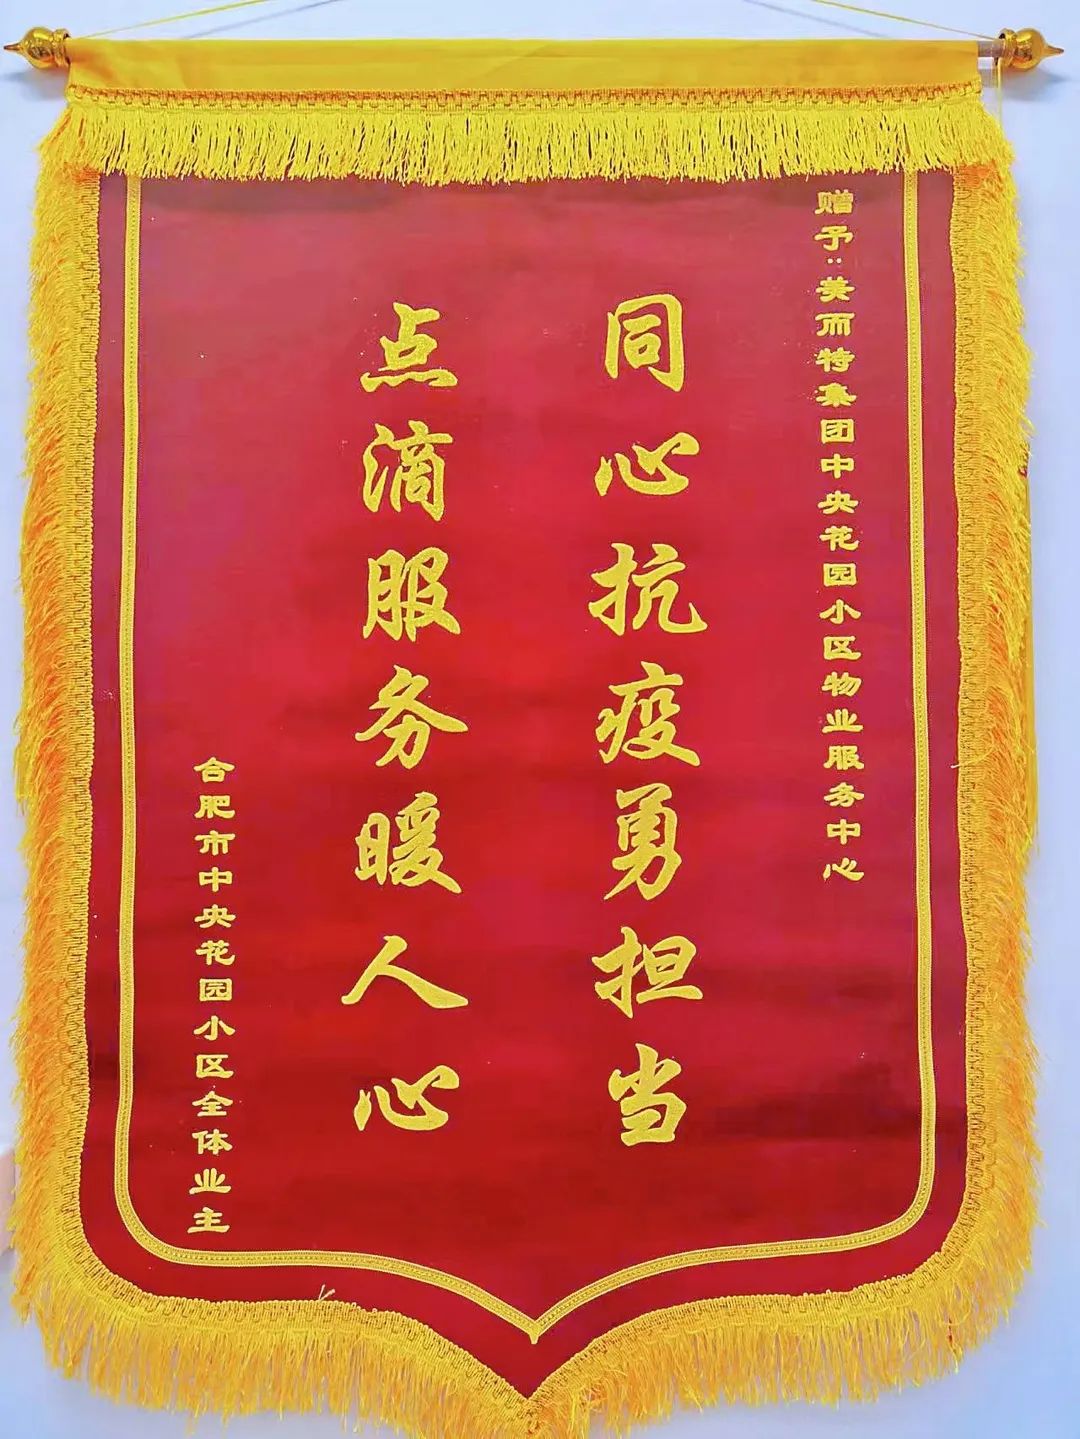 赠予:美而特集团中央花园小区物业服务中心
同心抗疫勇担当
点滴服务暖人心
合肥市中央花园小区全体业主